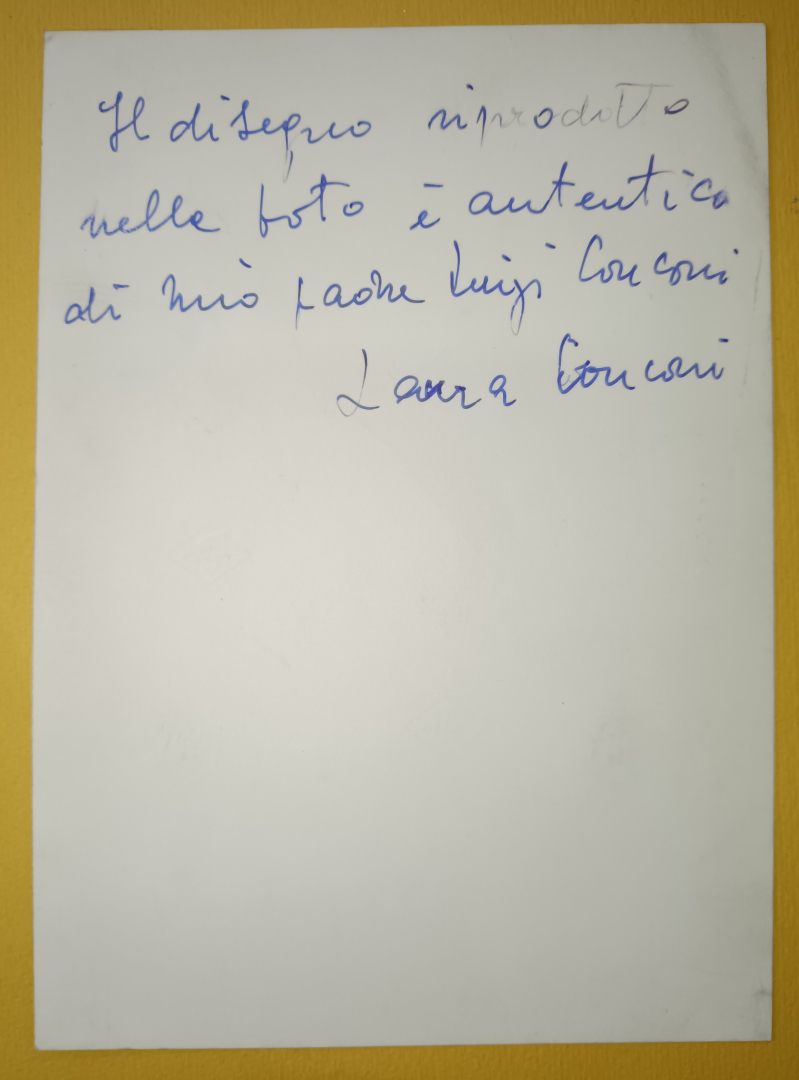 Il disegno riprodotto
nella foto è autentico
di mio padre Luigi Conconi
Laura Conconi